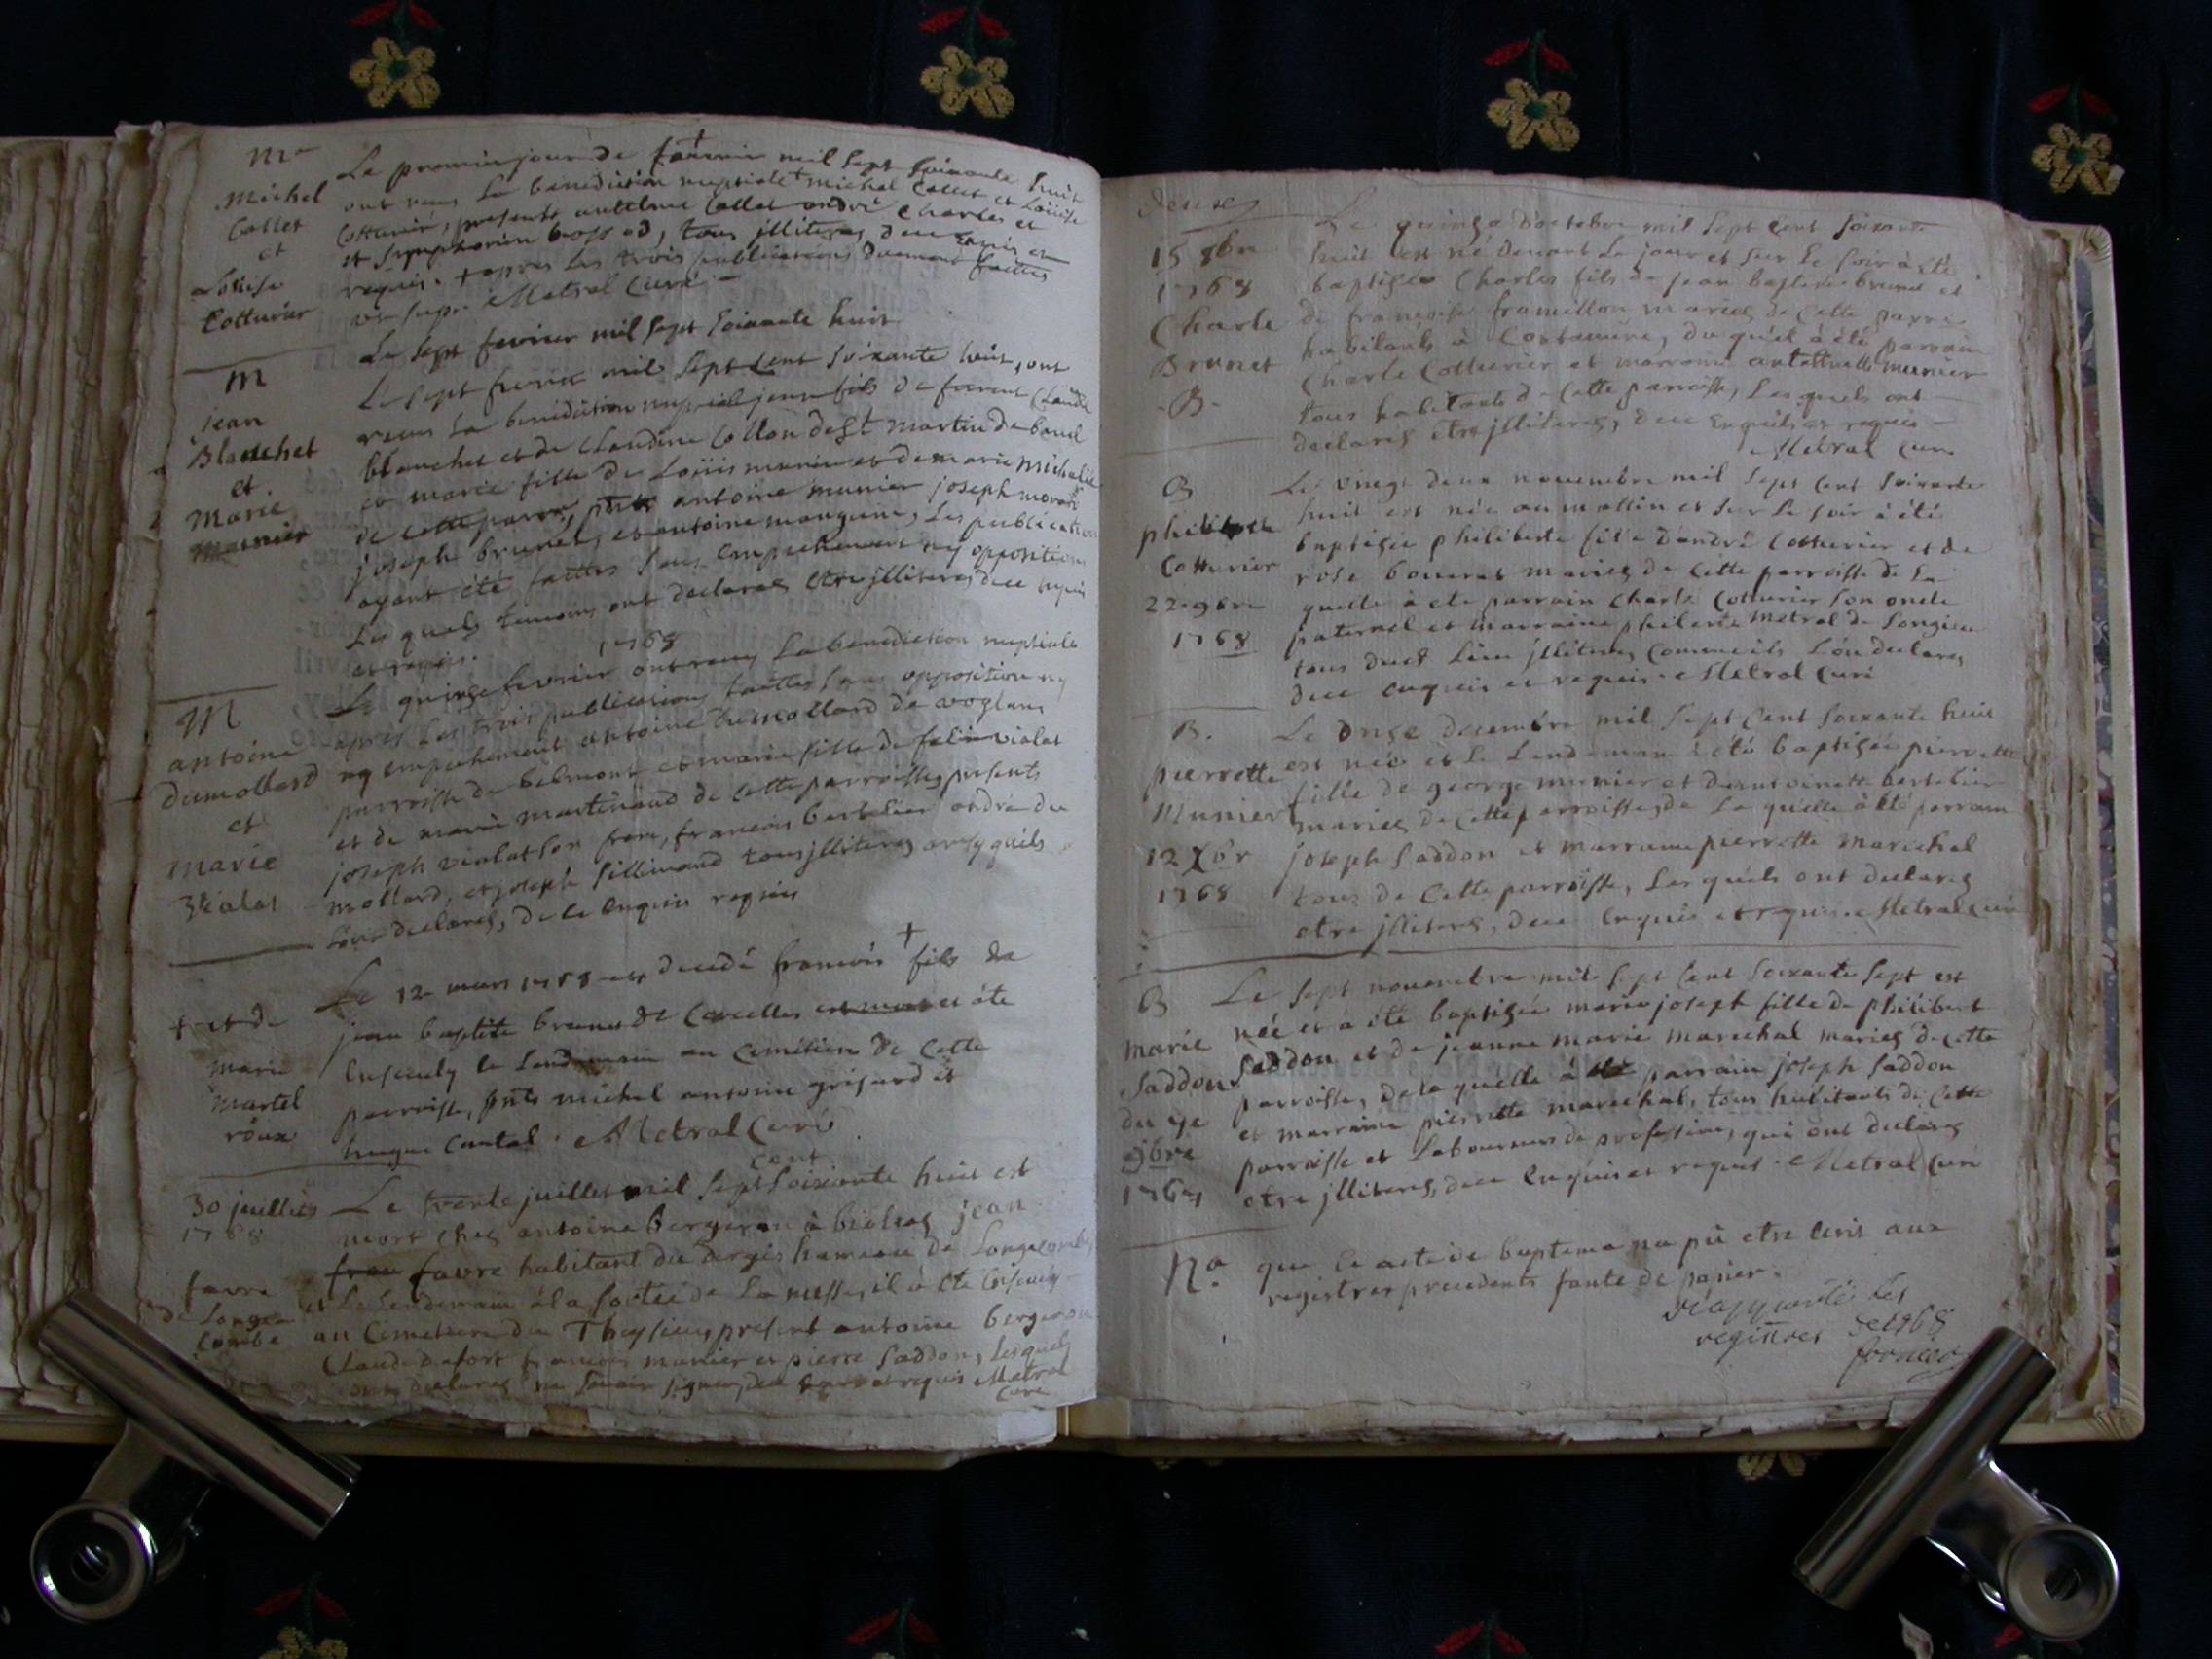 Mr
Michel
Collet
et
Loüise
Cotturier
Le premier jour de mil sept soixante huit
ont reçu la benediction nuptiale + michel Collet et Loüise
Cotturier, presents antelme Collet andré Charles et
et Symphorien bossod, tous jlliteres dece enquis et
requis. + apres les trois publications duement faittes
ut supr. Metral Curé
Le sept fevrier mil sept soixante huit
M
jean
Blanchet
et
Marie
Munier
Le sept fevrier mil sept cent soixante huit, ont
reçus la benediction nuptiale jean fils de Claude
blanchet et de Claudine Collon de St martin de bavel
et marie fille de Loüis munier et de marie
de cette parroi, antoine munier joseph
joseph brunet, et antoine manguin, les publications
ayant été faittes sans empechement ny opposition
Les quels temoins ont declarés etre jlliteres dece enquis
et requis.
1768
M
antoine
dumollard
et
marie
Vialat
Le quinze fevrier ont reçu la benediction nuptiale
apres les trois publications faittes sans opposition ny
ny empechement antoine dumollard de voglans
parroisse de belmont et marie fille de felix vialat
et de marie martinand de cette parroisse, presents
joseph vialat son frere, francois bertelier andré du
mollard, et joseph sillimand tous jlliteres ainsy quils
lont declarés, de ce enquis requis
+ et de
marie
martel
roux
Le 12 mars 1768 est decedé francois + fils de
jean baptiste brunet de Corcelles est mort et à ete
Ensevely le lendemain au Cimetiere de cette
parroisse, pnts michel antoine grisard et
hugue Cantal. Metral Curé
30 juillet
1768
favre
de Longe
Combe
Le trente juillet mil sept cent soixante huit est
mort chez antoine bergeron à jean
favre habitant du dergis hameau de Longecombe
et le Lendemain à la sortie de la messe, il à ete Ensevely
au Cimetiere de Thezilieu, present antoine bergeron
Claude francois munier et pierre Saddon, lesquels
ont declares ne savoir signer, dece enquis et requis Metral
Curé
15 8bre
1768
Charle
Brunet
B
Le quinze d'octobre mil sept cent soixante
huit est né devant le jour et sur le soir à été
baptisé Charles fils de jean baptiste brunet et
de francoise framillon mariés de cette parroi
habitants à du quel à été parrain
Charle Cotturier et marraine munier
tous habitants de cette parroisse, Les quels ont
declarés etre jlliteres, dece Enquis et requis
Metral Curé
B
philiberte
Cotturier
22 9bre
1768
Le vingt deux novembre mil sept cent soixante
huit est née au mattin et sur le soir à été
baptisée philiberte fille d'andré Cotturier et de
rose bouvet mariés de cette parroisse de la
quelle à ete parrain Charle Cotturier son oncle
paternel et marraine Metral de Songieu
tous dudt Lieu jlliteres comme ils l'on declarés
dece enquis et requis. Metral Curé
B.
pierrette
Munier
12 Xbr
1768
Le onze decembre mil sept cent soixante huit
est née et le Lendemain à été baptisée pierrette
fille de george munier et d'antoinette bertelier
mariés de cette parroisse, de la quelle à été parrain
joseph Saddon et marraine pierrette marechal
tous de cette parroisse, Les quels ont declarés
etre jlliteres, dece enquis et requis. Metral Curé
B
marie
Saddon
du 7e
9bre
1767
Le sept novembre mil sept cent soixante sept est
née et à été baptisée marie joseph fille de philibert
Saddon et de jeanne marie marechal mariés de cette
parroisse, de la quelle à été parrain joseph Saddon
et marraine pierrette marechal, tous habitants de cette
parroisse et Laboureurs de profession, qui ont declarés
etre jlliteres, dece Enquis et requis. Metral Curé
Na que ce acte de bapteme na pû etre écrit aux
registres precedents faute de papier.
raporté les
registres de 1768